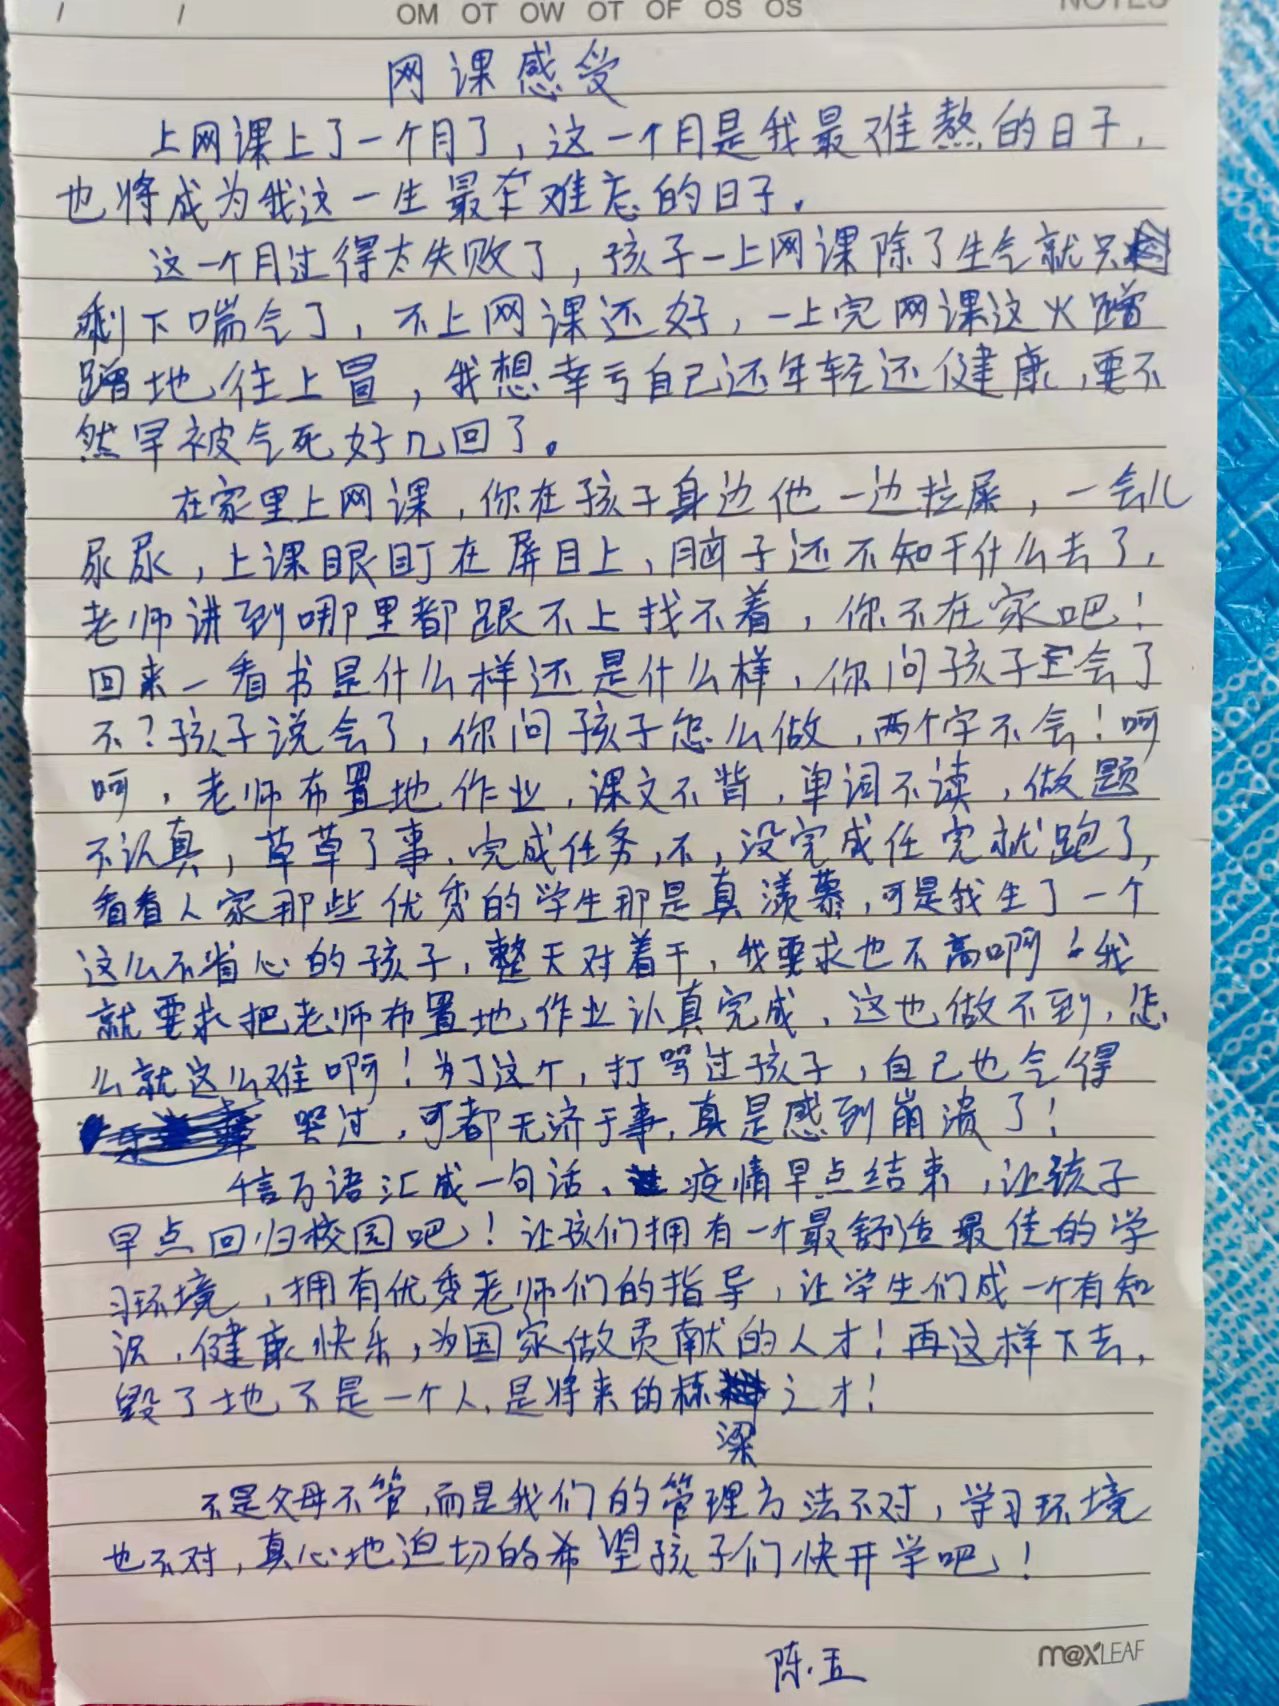 / / OM OT OW OT OF OS OS NOTES
网课感受
上网课上了一个月了,这一个月是我最难熬的日子,
也将成为我这一生最难忘的日子。
这一个月过得太失败了,孩子一上网课除了生气就只
剩下喘气了,不上网课还好,一上完网课这火蹭
蹭地往上冒,我想幸亏自己还年轻还健康,要不
然早被气死好几回了。
在家里上网课,你在孩子身边他一边拉屎,一会儿
尿尿,上课眼盯在屏目上,脑子还不知干什么去了,
老师讲到哪里都跟不上找不着,你不在家吧!
回来一看书是什么样还是什么样,你问孩子会了
不?孩子说会了,你问孩子怎么做,两个字不会!呵
呵,老师布置地作业,课文不背,单词不读,做题
不认真,草草了事,完成任务,不,没完成任完就跑了,
看看人家那些优秀的学生那是真羡慕,可是我生了一个
这么不省心的孩子,整天对着干,我要求也不高啊!我
就要求把老师布置地作业认真完成,这也做不到,怎
么就这么难啊!为了这个,打骂过孩子,自己也气得
哭过,可都无济于事,真是感到崩溃了!
信万语汇成一句话、疫情早点结束,让孩子
早点回归校园吧!让孩们拥有一个最舒适最佳的学
习环境,拥有优秀老师们的指导,让学生们成一个有知
识,健康快乐,为国家做贡献的人才!再这样下去,
毁了地不是一个人,是将来的栋梁之才!
不是父母不管,而是我们的管理方法不对,学习环境
也不对,真心地迫切的希望孩子们快开学吧!
陈.五
m@xLEAF